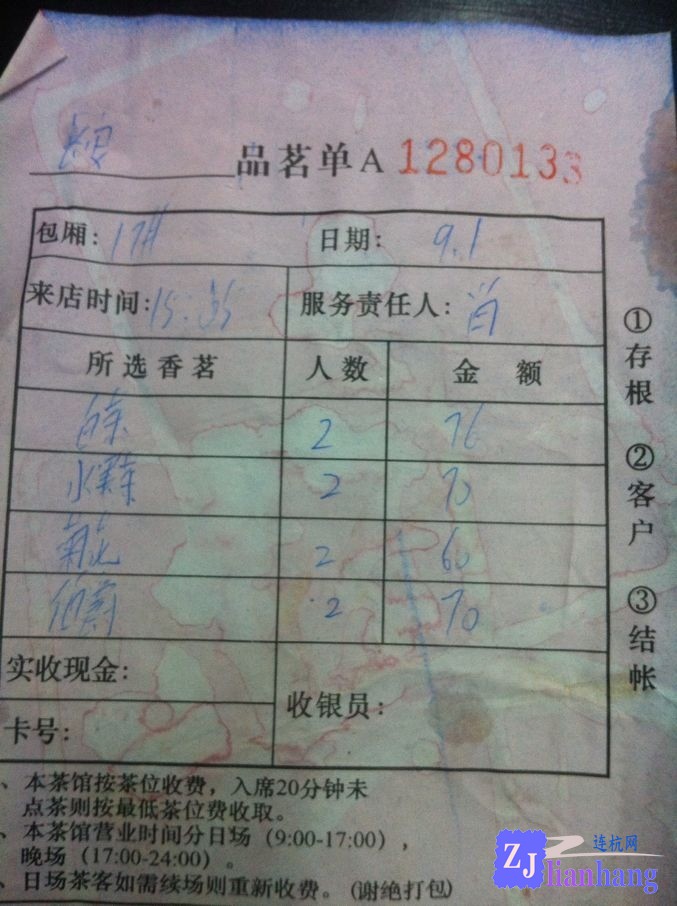 品茗单A 1280133
包厢: 17# 日期: 9.1
来店时间:15:35 服务责任人:
所选香茗 人数 金额
2 76
2 70
菊花 2 60
2 70
实收现金:
收银员:
卡号:
①存根 ②客户 ③结帐
、本茶馆按茶位收费，入席20分钟未
点茶则按最低茶位费收取。
、本茶馆营业时间分日场（9:00-17:00），
晚场（17:00-24:00）。
、日场茶客如需续场则重新收费。(谢绝打包)
ZJ 连杭网
lianhang